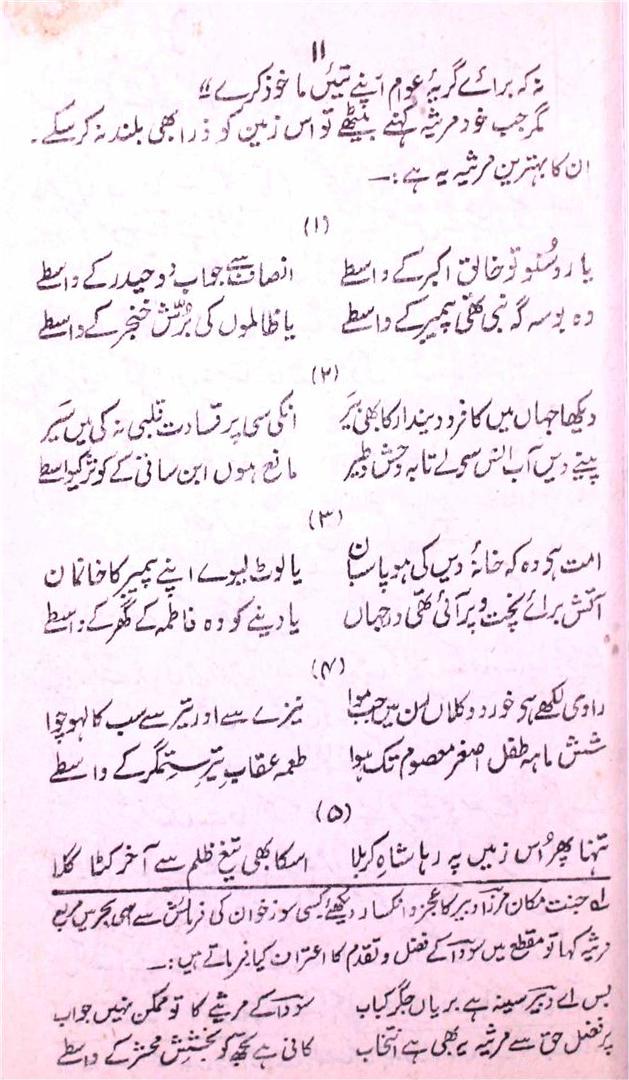 ۱۱
نہ کہ برائے گریۂ عوام اپنے تئیں ماخوذ کرے"
مگر جب خود مرثیہ کہنے بیٹھے تو اس زمین کو ذرا بھی بلند نہ کر سکے۔
ان کا بہترین مرثیہ یہ ہے :—
(۱)
یارو سُنو تو خالق اکبر کے واسطے انصاف سے جواب دو حیدر کے واسطے
وہ بوسہ گہ نبی تھی پیمبر کے واسطے یا ظالموں کی بُرّشِ خنجر کے واسطے
(۲)
دیکھا جہاں میں کافر و دیندار کا بھی بَیر انکی سی پر قساوت قلبی نہ کی میں سَیر
پینے دیں آب انس سی لے تا بہ وحش و طیر مانع ہوں ابن ساقیٔ کوثر کیواسطے
(۳)
امت ہی وہ کہ خانۂ دیں کی ہو پاسبان یا لوٹ لیوے اپنے پیمبر کا خانمان
آتش برائے پخت و پز آئی تھی در جہاں یا دینے کو وہ فاطمہ کے گھر کے واسطے
(۴)
راوی لکھے ہی خورد و کلاں اسن میں جب موا نیزے سے اور تیر سے سب کا لہو چوا
شش ماہہ طفل اصغر معصوم تک ہوا طعمہ عقابِ تیرِ ستمگر کے واسطے
(۵)
تنہا پھر اُس زمیں پہ رہا شاہِ کربلا اسکا بھی تیغِ ظلم سے آخر کٹا گلا
لہ جنت مکان مرزا دبیر کا عجز و انکسار دیکھئے کسی سوز خوان کی فرمائش سے اسی بحر میں مربع
مرثیہ کہا تو مقطع میں سودا کے فضل و تقدم کا اعتراف کیا فرماتے ہیں :—
بس اے دبیر سینہ ہے بریاں جگر کباب سودا کے مرثیے کا تو ممکن نہیں جواب
پر فضل حق سے مرثیہ یہ بھی ہے انتخاب کافی ہے تجھ کو بخششِ محشر کے واسطے